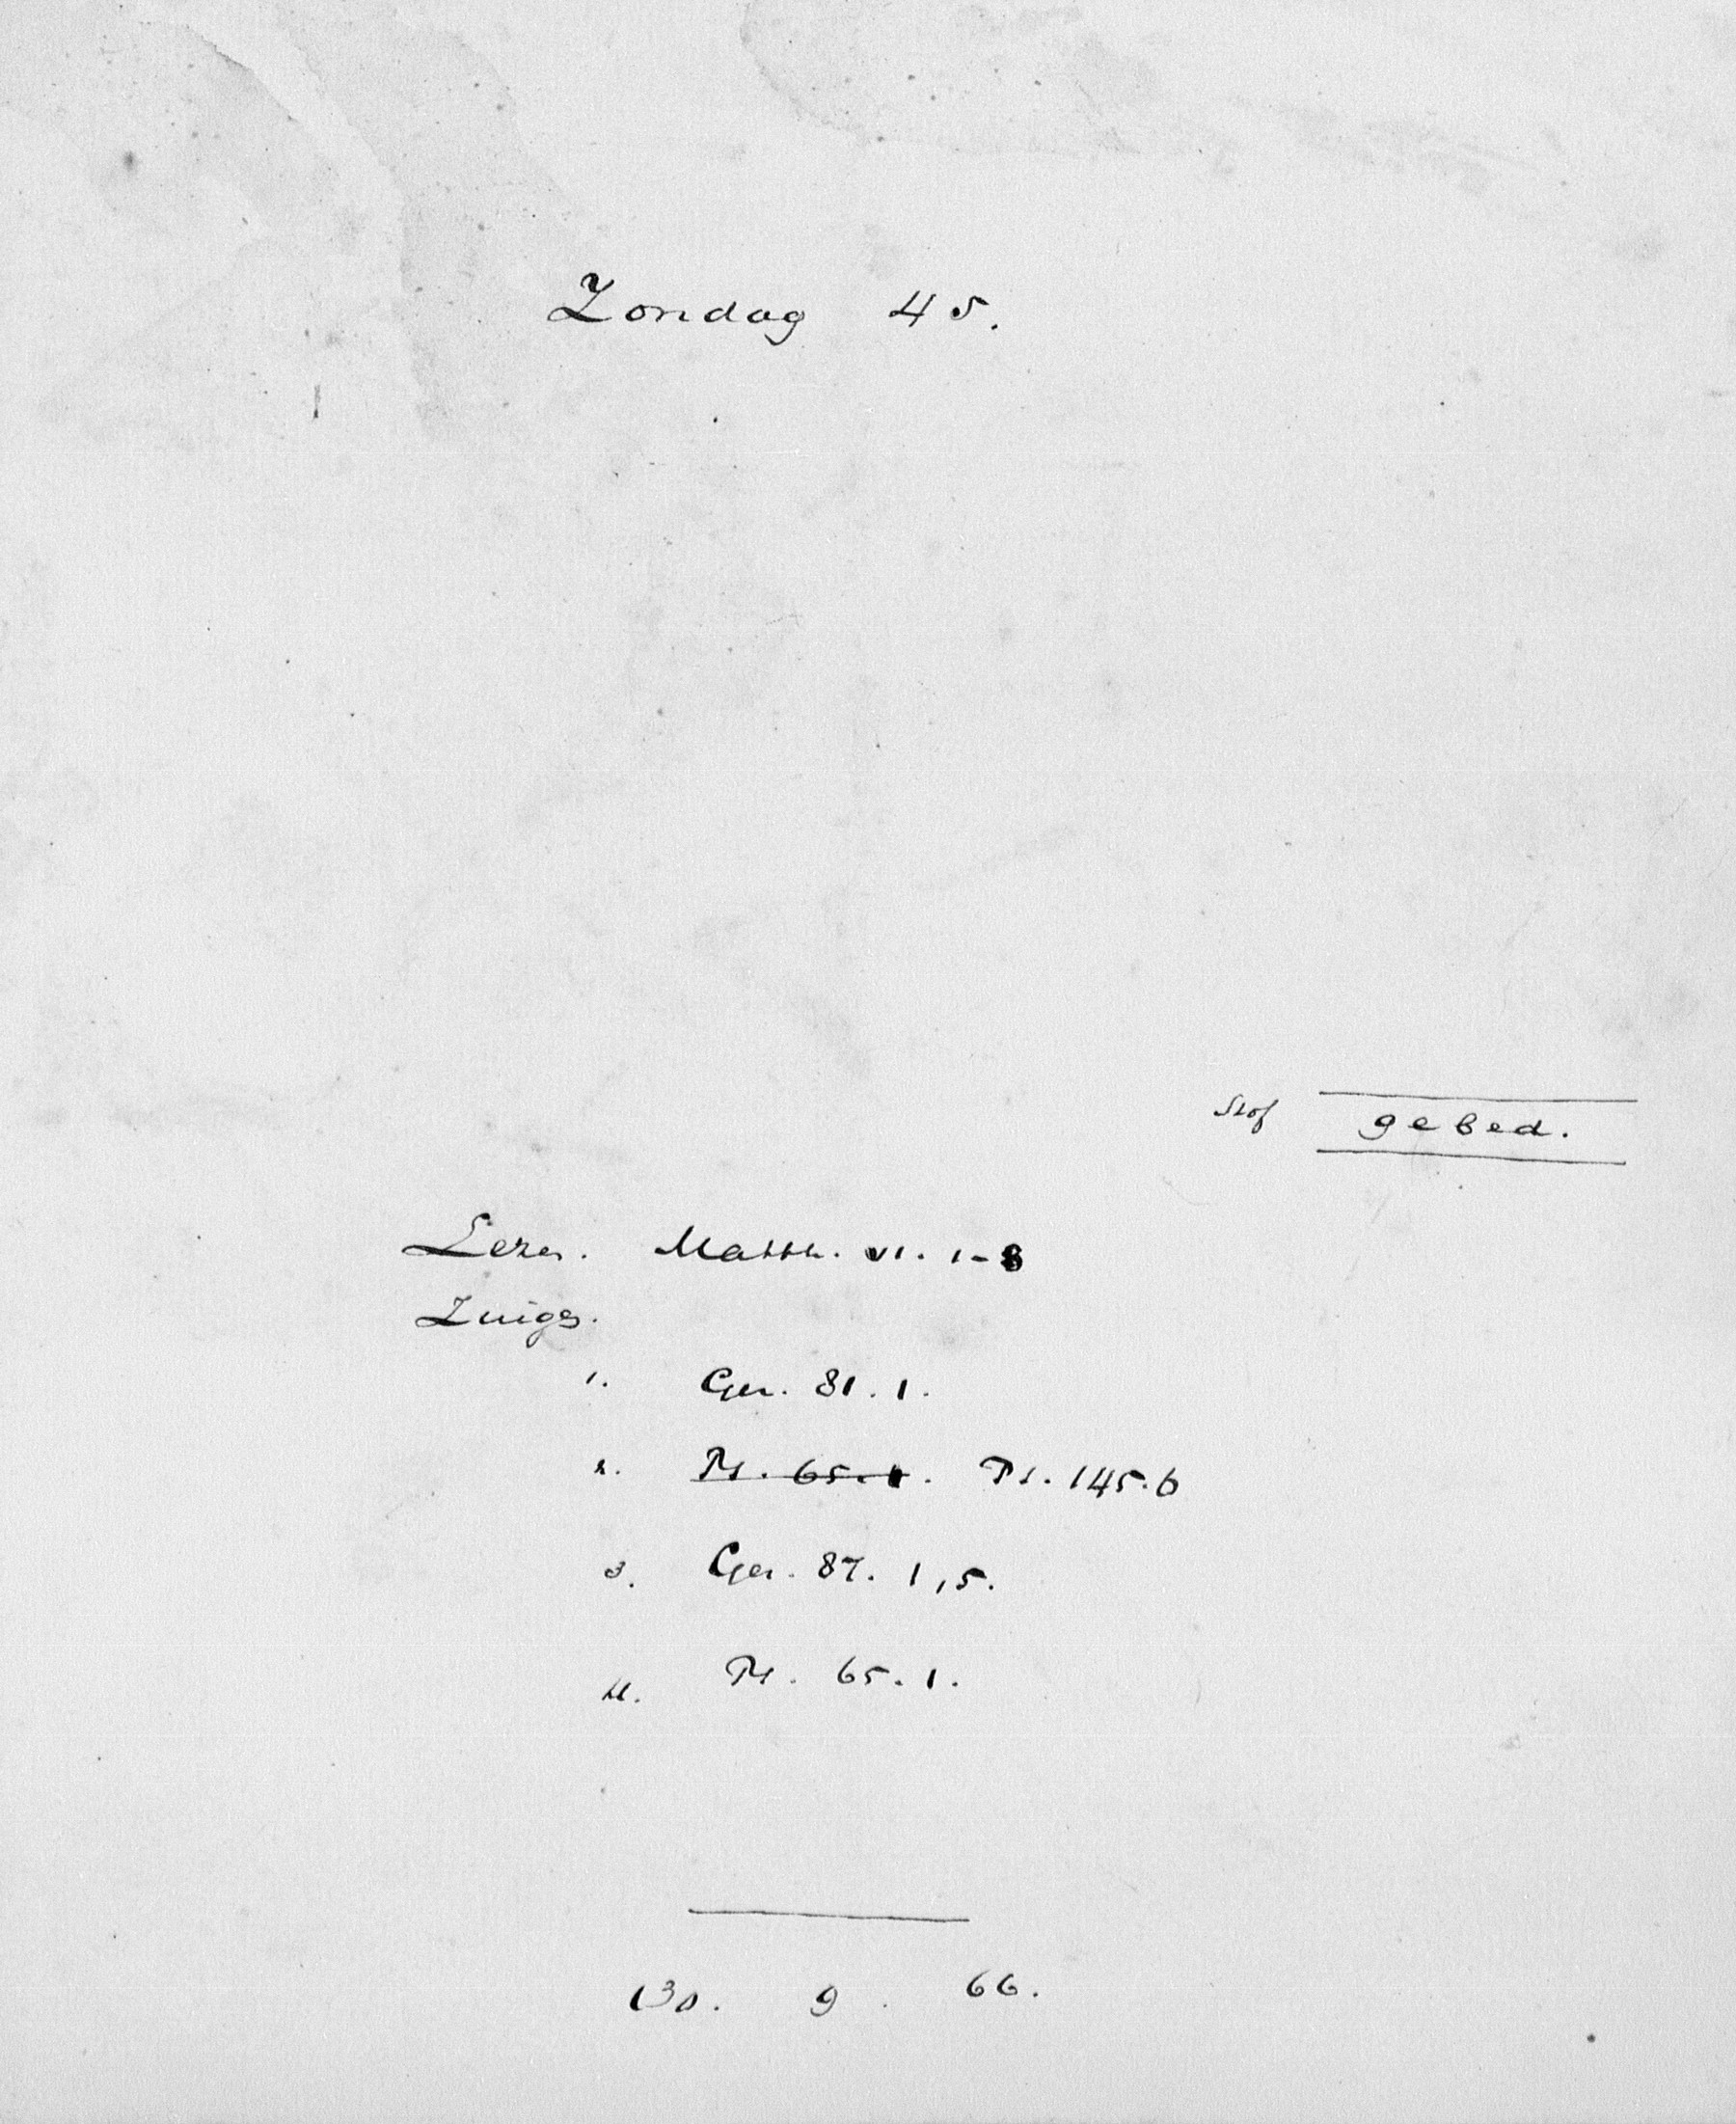 Zondag 45.
Stof gebed.
Lezen. Matth. VI. 1-8
Zinge.
1. Gez. 81. 1.
2. Ps. 65. 1. Ps. 145. 6
3. Gez. 87. 1, 5.
4. Ps. 65. 1.
9. 66.